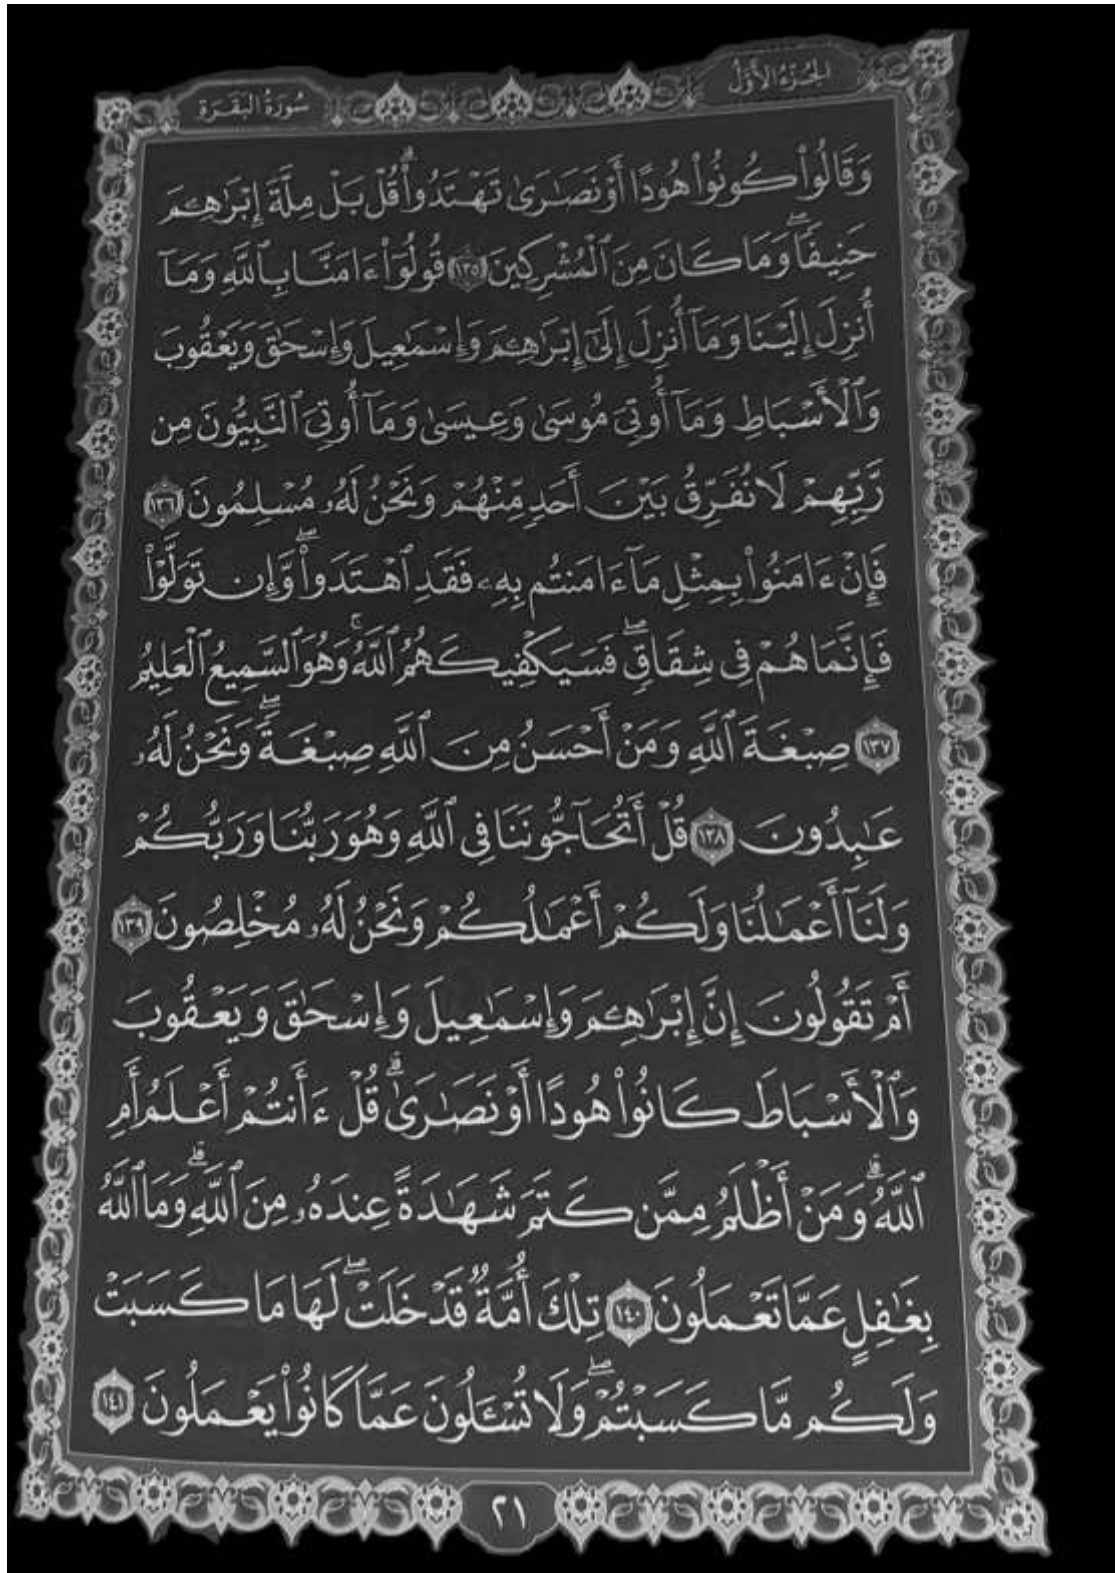 الجُزْءُ الأَوَّلُ
سُورَةُ البَقَرَةِ
وَقَالُوا۟ كُونُوا۟ هُودًا أَوْ نَصَٰرَىٰ تَهْتَدُوا۟ۗ قُلْ بَلْ مِلَّةَ إِبْرَٰهِـۧمَ
حَنِيفًاۖ وَمَا كَانَ مِنَ ٱلْمُشْرِكِينَ ١٣٥ قُولُوٓا۟ ءَامَنَّا بِٱللَّهِ وَمَآ
أُنزِلَ إِلَيْنَا وَمَآ أُنزِلَ إِلَىٰٓ إِبْرَٰهِـۧمَ وَإِسْمَٰعِيلَ وَإِسْحَٰقَ وَيَعْقُوبَ
وَٱلْأَسْبَاطِ وَمَآ أُوتِىَ مُوسَىٰ وَعِيسَىٰ وَمَآ أُوتِىَ ٱلنَّبِيُّونَ مِن
رَّبِّهِمْ لَا نُفَرِّقُ بَيْنَ أَحَدٍ مِّنْهُمْ وَنَحْنُ لَهُۥ مُسْلِمُونَ ١٣٦
فَإِنْ ءَامَنُوا۟ بِمِثْلِ مَآ ءَامَنتُم بِهِۦ فَقَدِ ٱهْتَدَوا۟ۖ وَّإِن تَوَلَّوْا۟
فَإِنَّمَا هُمْ فِى شِقَاقٍۖ فَسَيَكْفِيكَهُمُ ٱللَّهُۚ وَهُوَ ٱلسَّمِيعُ ٱلْعَلِيمُ
١٣٧ صِبْغَةَ ٱللَّهِ وَمَنْ أَحْسَنُ مِنَ ٱللَّهِ صِبْغَةًۖ وَنَحْنُ لَهُۥ
عَٰبِدُونَ ١٣٨ قُلْ أَتُحَآجُّونَنَا فِى ٱللَّهِ وَهُوَ رَبُّنَا وَرَبُّكُمْ
وَلَنَآ أَعْمَٰلُنَا وَلَكُمْ أَعْمَٰلُكُمْ وَنَحْنُ لَهُۥ مُخْلِصُونَ ١٣٩
أَمْ تَقُولُونَ إِنَّ إِبْرَٰهِـۧمَ وَإِسْمَٰعِيلَ وَإِسْحَٰقَ وَيَعْقُوبَ
وَٱلْأَسْبَاطَ كَانُوا۟ هُودًا أَوْ نَصَٰرَىٰۗ قُلْ ءَأَنتُمْ أَعْلَمُ أَمِ
ٱللَّهُۗ وَمَنْ أَظْلَمُ مِمَّن كَتَمَ شَهَٰدَةً عِندَهُۥ مِنَ ٱللَّهِۗ وَمَا ٱللَّهُ
بِغَٰفِلٍ عَمَّا تَعْمَلُونَ ١٤٠ تِلْكَ أُمَّةٌ قَدْ خَلَتْۖ لَهَا مَا كَسَبَتْ
وَلَكُم مَّا كَسَبْتُمْۖ وَلَا تُسْـَٔلُونَ عَمَّا كَانُوا۟ يَعْمَلُونَ ١٤١
٢١